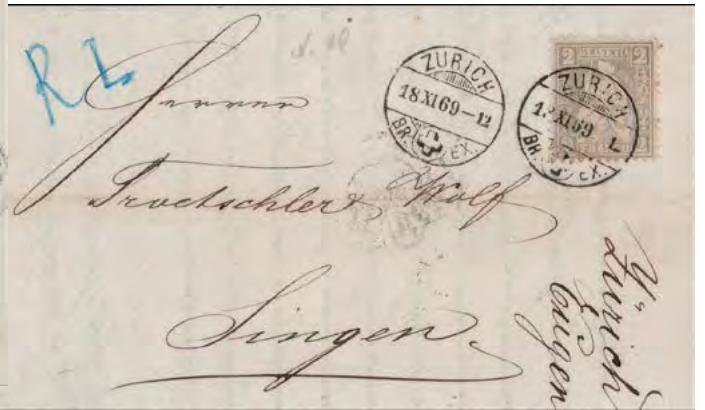 R L
ZURICH
18 XI 69–12
BR. EX.
2 HELVETIA 2
ZURICH
XI 69
BR. EX.
Herren
Troetschler & Wolf
Singen
Zürich
Engen